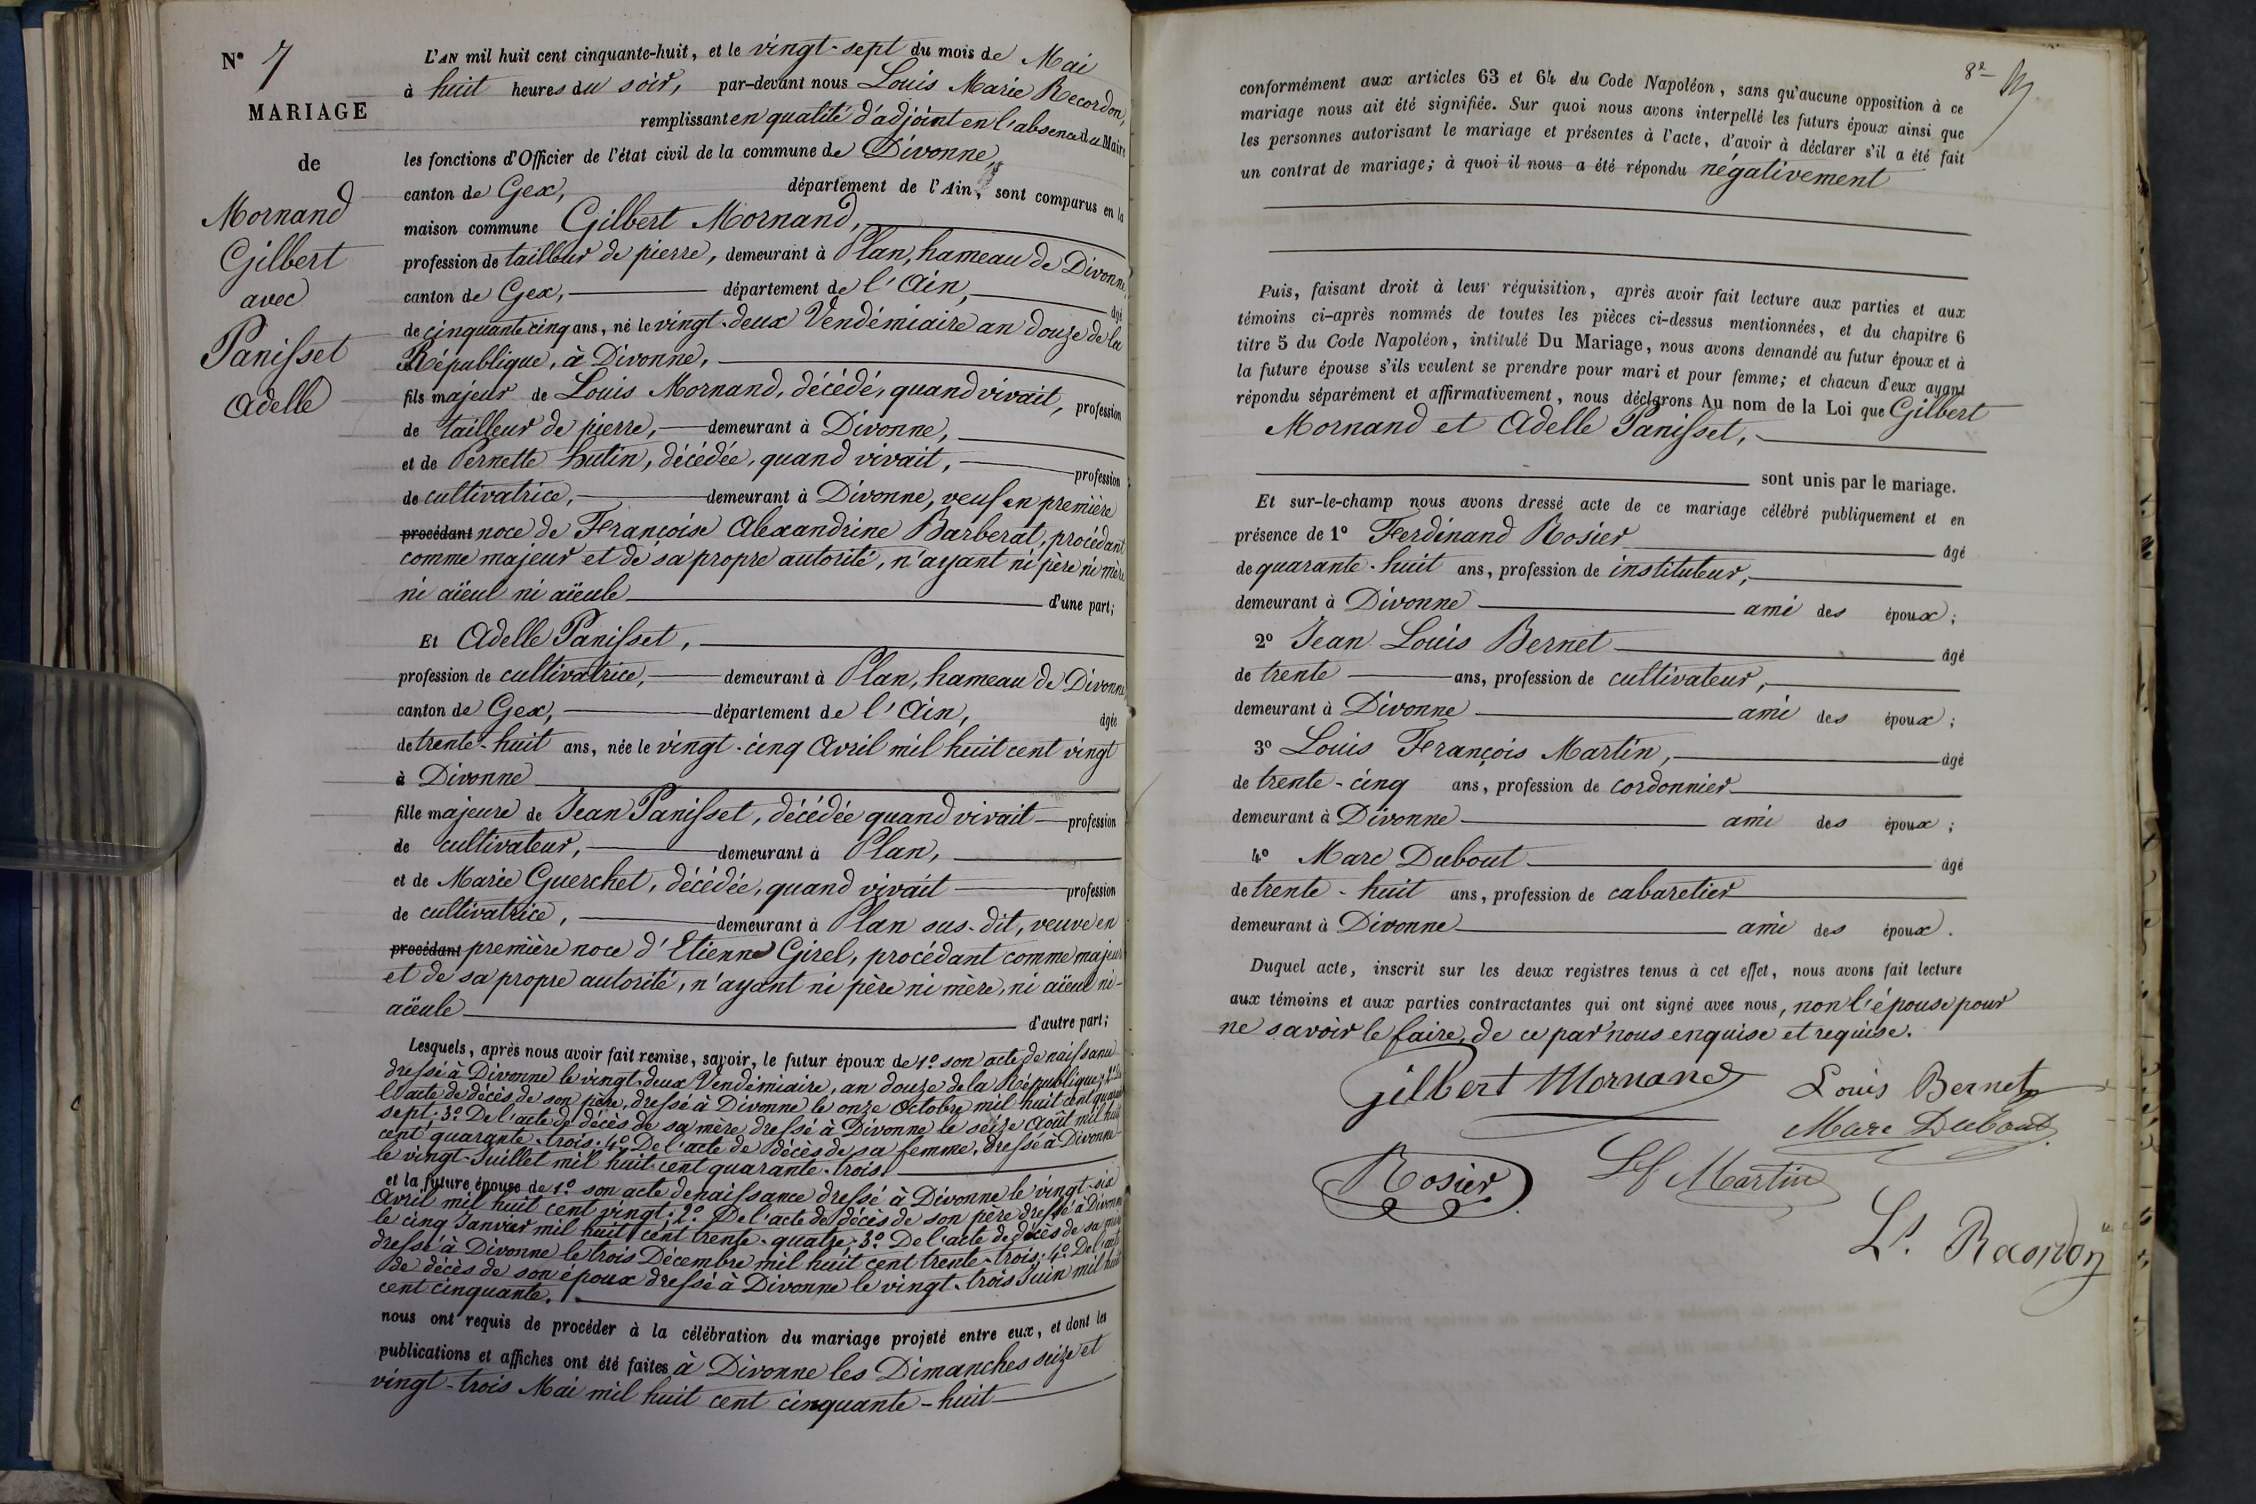 N° 7
MARIAGE
de
Mornand
Gilbert
avec
Panisset
Adelle
L'AN mil huit cent cinquante-huit, et le vingt-sept du mois de Mai
à huit heures du soir, par-devant nous Louis Marie Recordon,
remplissant en qualité d'adjoint en l'absence du Maire
les fonctions d'Officier de l'état civil de la commune de Divonne,
canton de Gex, département de l'Ain, sont comparus en la
maison commune Gilbert Mornand,
profession de tailleur de pierre, demeurant à Plan, hameau de Divonne,
canton de Gex, département de l'Ain, âgé
de cinquante cinq ans, né le vingt-deux Vendémiaire an douze de la
République, à Divonne,
fils majeur de Louis Mornand, décédé, quand vivait, profession
de tailleur de pierre, demeurant à Divonne,
et de Pernette Hutin, décédée, quand vivait, profession
de cultivatrice, demeurant à Divonne, veuf en première
procédant noce de Françoise Alexandrine Barberat, procédant
comme majeur et de sa propre autorité, n'ayant ni père ni mère
ni aïeul ni aïeule d'une part;
Et Adelle Panisset,
profession de cultivatrice, demeurant à Plan, hameau de Divonne
canton de Gex, département de l'Ain, âgée
de trente-huit ans, née le vingt-cinq Avril mil huit cent vingt
à Divonne
fille majeure de Jean Panisset, décédée quand vivait profession
de cultivateur, demeurant à Plan,
et de Marie Guerchet, décédée, quand vivait profession
de cultivatrice, demeurant à Plan sus-dit, veuve en
procédant première noce d'Etienne Girel, procédant comme majeur
et de sa propre autorité, n'ayant ni père ni mère, ni aïeul ni-
aïeule d'autre part;
Lesquels, après nous avoir fait remise, savoir, le futur époux de 1° son acte de naissance
dressé à Divonne le vingt-deux Vendémiaire, an douze de la République; 2° De
l'acte de décès de son père, dressé à Divonne le onze Octobre mil huit cent quarante
sept; 3° De l'acte de décès de sa mère dressé à Divonne le seize Août mil huit
cent quarante-trois; 4° De l'acte de décès de sa femme, dressé à Divonne
le vingt-Juillet mil huit cent quarante-trois.
et la future épouse de 1° son acte de naissance dressé à Divonne le vingt-six
Avril mil huit cent vingt; 2° De l'acte de décès de son père dressé à Divonne
le cinq Janvier mil huit cent trente-quatre; 3° De l'acte de décès de sa mère
dressé à Divonne le trois Décembre mil huit cent trente-trois; 4° De l'acte
de décès de son époux dressé à Divonne le vingt-trois Juin mil huit
cent cinquante.
nous ont requis de procéder à la célébration du mariage projeté entre eux, et dont les
publications et affiches ont été faites à Divonne les Dimanches seize et
vingt-trois Mai mil huit cent cinquante-huit
8e
conformément aux articles 63 et 64 du Code Napoléon, sans qu'aucune opposition à ce
mariage nous ait été signifiée. Sur quoi nous avons interpellé les futurs époux ainsi que
les personnes autorisant le mariage et présentes à l'acte, d'avoir à déclarer s'il a été fait
un contrat de mariage; à quoi il nous a été répondu négativement
Puis, faisant droit à leur réquisition, après avoir fait lecture aux parties et aux
témoins ci-après nommés de toutes les pièces ci-dessus mentionnées, et du chapitre 6
titre 5 du Code Napoléon, intitulé Du Mariage, nous avons demandé au futur époux et à
la future épouse s'ils veulent se prendre pour mari et pour femme; et chacun d'eux ayant
répondu séparément et affirmativement, nous déclarons Au nom de la Loi que Gilbert
Mornand et Adelle Panisset,
sont unis par le mariage.
Et sur-le-champ nous avons dressé acte de ce mariage célébré publiquement et en
présence de 1° Ferdinand Rosier âgé
de quarante-huit ans, profession de instituteur,
demeurant à Divonne ami des époux;
2° Jean Louis Bernet âgé
de trente ans, profession de cultivateur,
demeurant à Divonne ami des époux;
3° Louis François Martin, âgé
de trente-cinq ans, profession de cordonnier
demeurant à Divonne ami des époux;
4° Marc Dubout âgé
de trente-huit ans, profession de cabaretier
demeurant à Divonne ami des époux.
Duquel acte, inscrit sur les deux registres tenus à cet effet, nous avons fait lecture
aux témoins et aux parties contractantes qui ont signé avec nous, non l'épouse pour
ne savoir le faire, de ce par nous enquise et requise.
Gilbert Mornand Louis Bernet
Marc Dubout
Rosier Lf Martin
Ls. Recordon